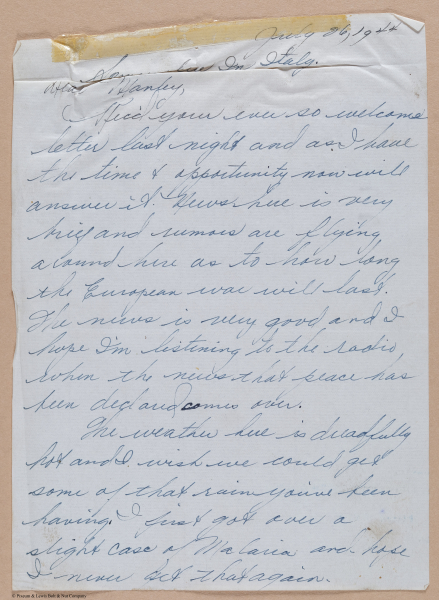 July 26, 1944
Somewhere in Italy.
Dear Stanley,
Rec'd your ever so welcome
letter last night and as I have
the time & opportunity now will
answer it. News here is very
brief and rumors are flying
around here as to how long
the European war will last.
The news is very good and I
hope I'm listening to the radio
when the news that peace has
been declared comes over.
The weather here is dreadfully
hot and I wish we could get
some of that rain you've been
having. I just got over a
slight case of Malaria and hope
I never get that again.
© Preston & Lewis Bolt & Nut Company